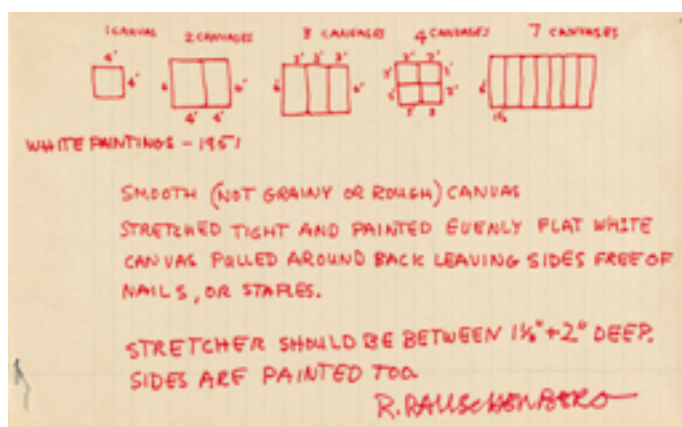 1 CANVAS 2 CANVASES 3 CANVASES 4 CANVASES 7 CANVASES
4' 3' 3' 3' 3' 3'
4' 3' 3'
4' 4' 3' 3'
WHITE PAINTINGS – 1951
SMOOTH (NOT GRAINY OR ROUGH) CANVAS
STRETCHED TIGHT AND PAINTED EVENLY FLAT WHITE
CANVAS PULLED AROUND BACK LEAVING SIDES FREE OF
NAILS, OR STAPLES.
STRETCHER SHOULD BE BETWEEN 1½"+2" DEEP.
SIDES ARE PAINTED TOO.
R. RAUSCHENBERG